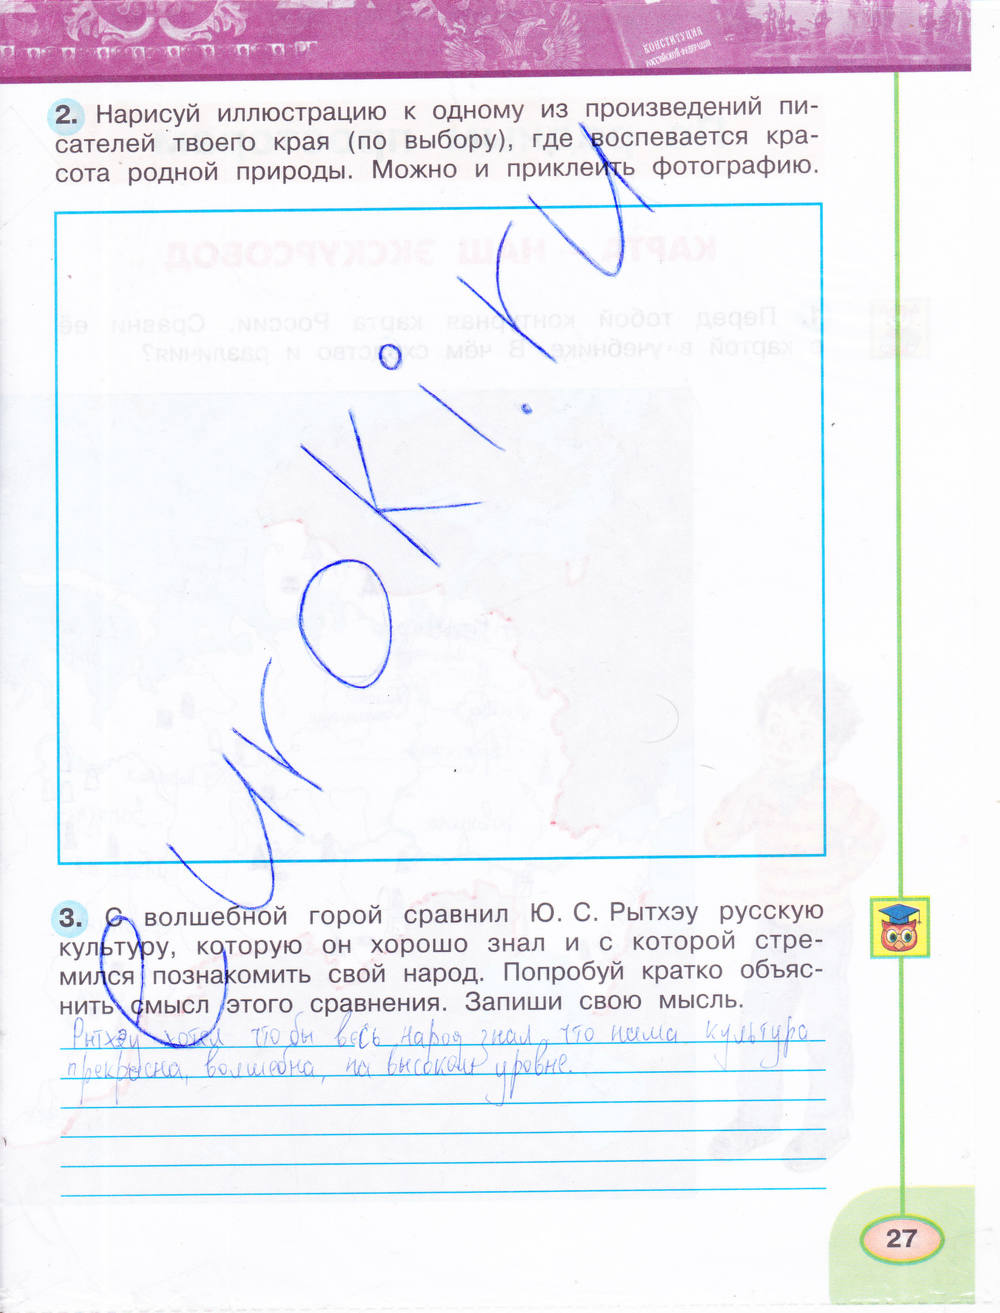 КОНСТИТУЦИЯ
РОССИЙСКОЙ ФЕДЕРАЦИИ
2. Нарисуй иллюстрацию к одному из произведений пи-
сателей твоего края (по выбору), где воспевается кра-
сота родной природы. Можно и приклеить фотографию.
eurokiki.ru
3. С волшебной горой сравнил Ю. С. Рытхэу русскую
культуру, которую он хорошо знал и с которой стре-
мился познакомить свой народ. Попробуй кратко объяс-
нить смысл этого сравнения. Запиши свою мысль.
Рытхэу хотел что бы весь народ знал, что наша культура
прекрасна, волшебна, на высоком уровне.
27